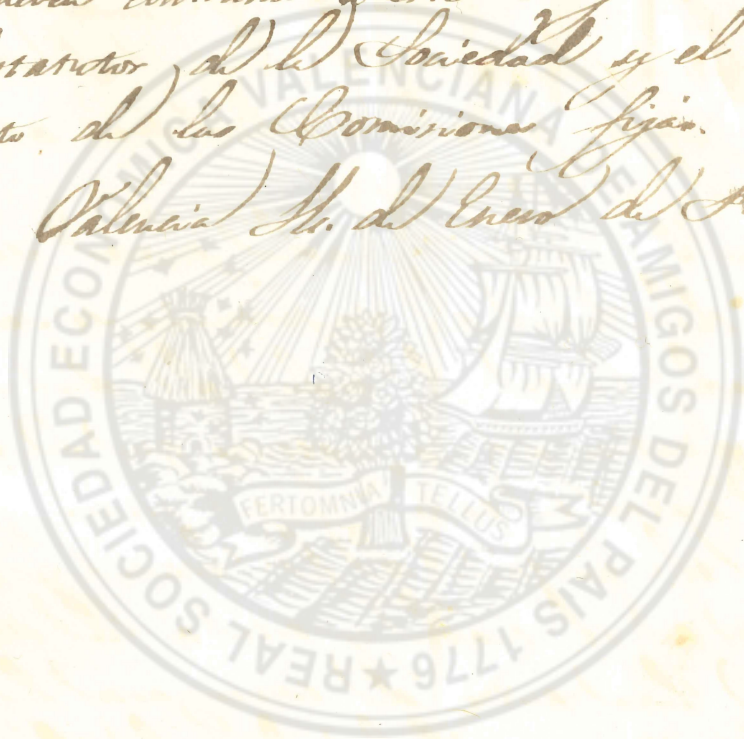 de la Sociedad y el
de las Comisiones fijas.
Valencia de Enero de
REAL SOCIEDAD ECONOMICA VALENCIANA DE AMIGOS DEL PAIS 1776 ★
FERT OMNIA TELLUS